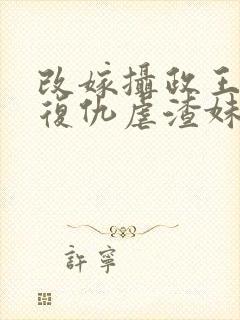 改嫁攝政王
復仇虐渣妹
許寧